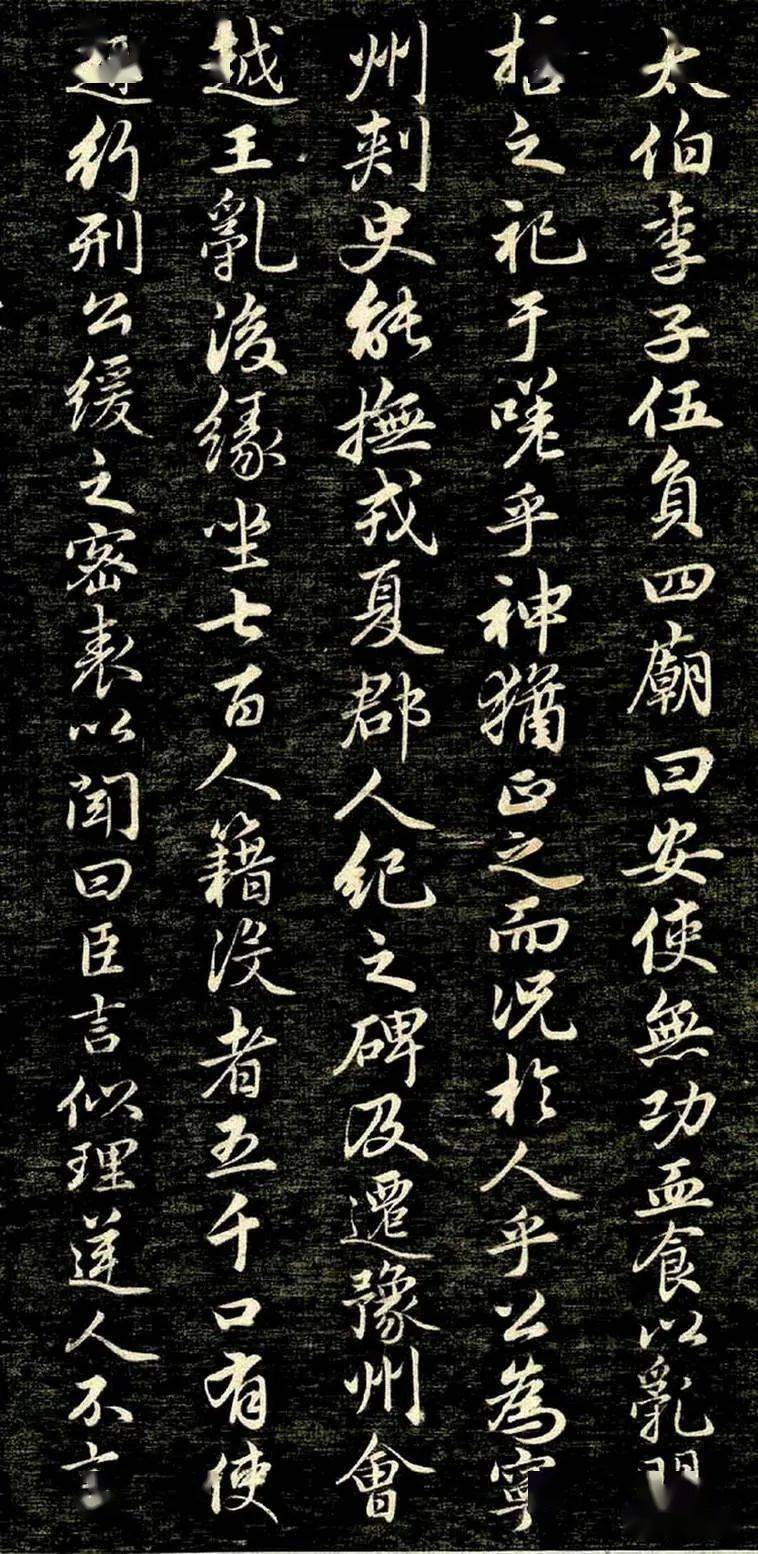 太伯季子伍員四廟曰安使無功血食以亂
之祀于嗟乎神猶正之而況於人乎公為寧
州刺史能撫戎夏郡人紀之碑及遷豫州會
越王亂後緣坐七百人籍沒者五千口有使
行刑公緩之密表以聞曰臣言似理逆人不